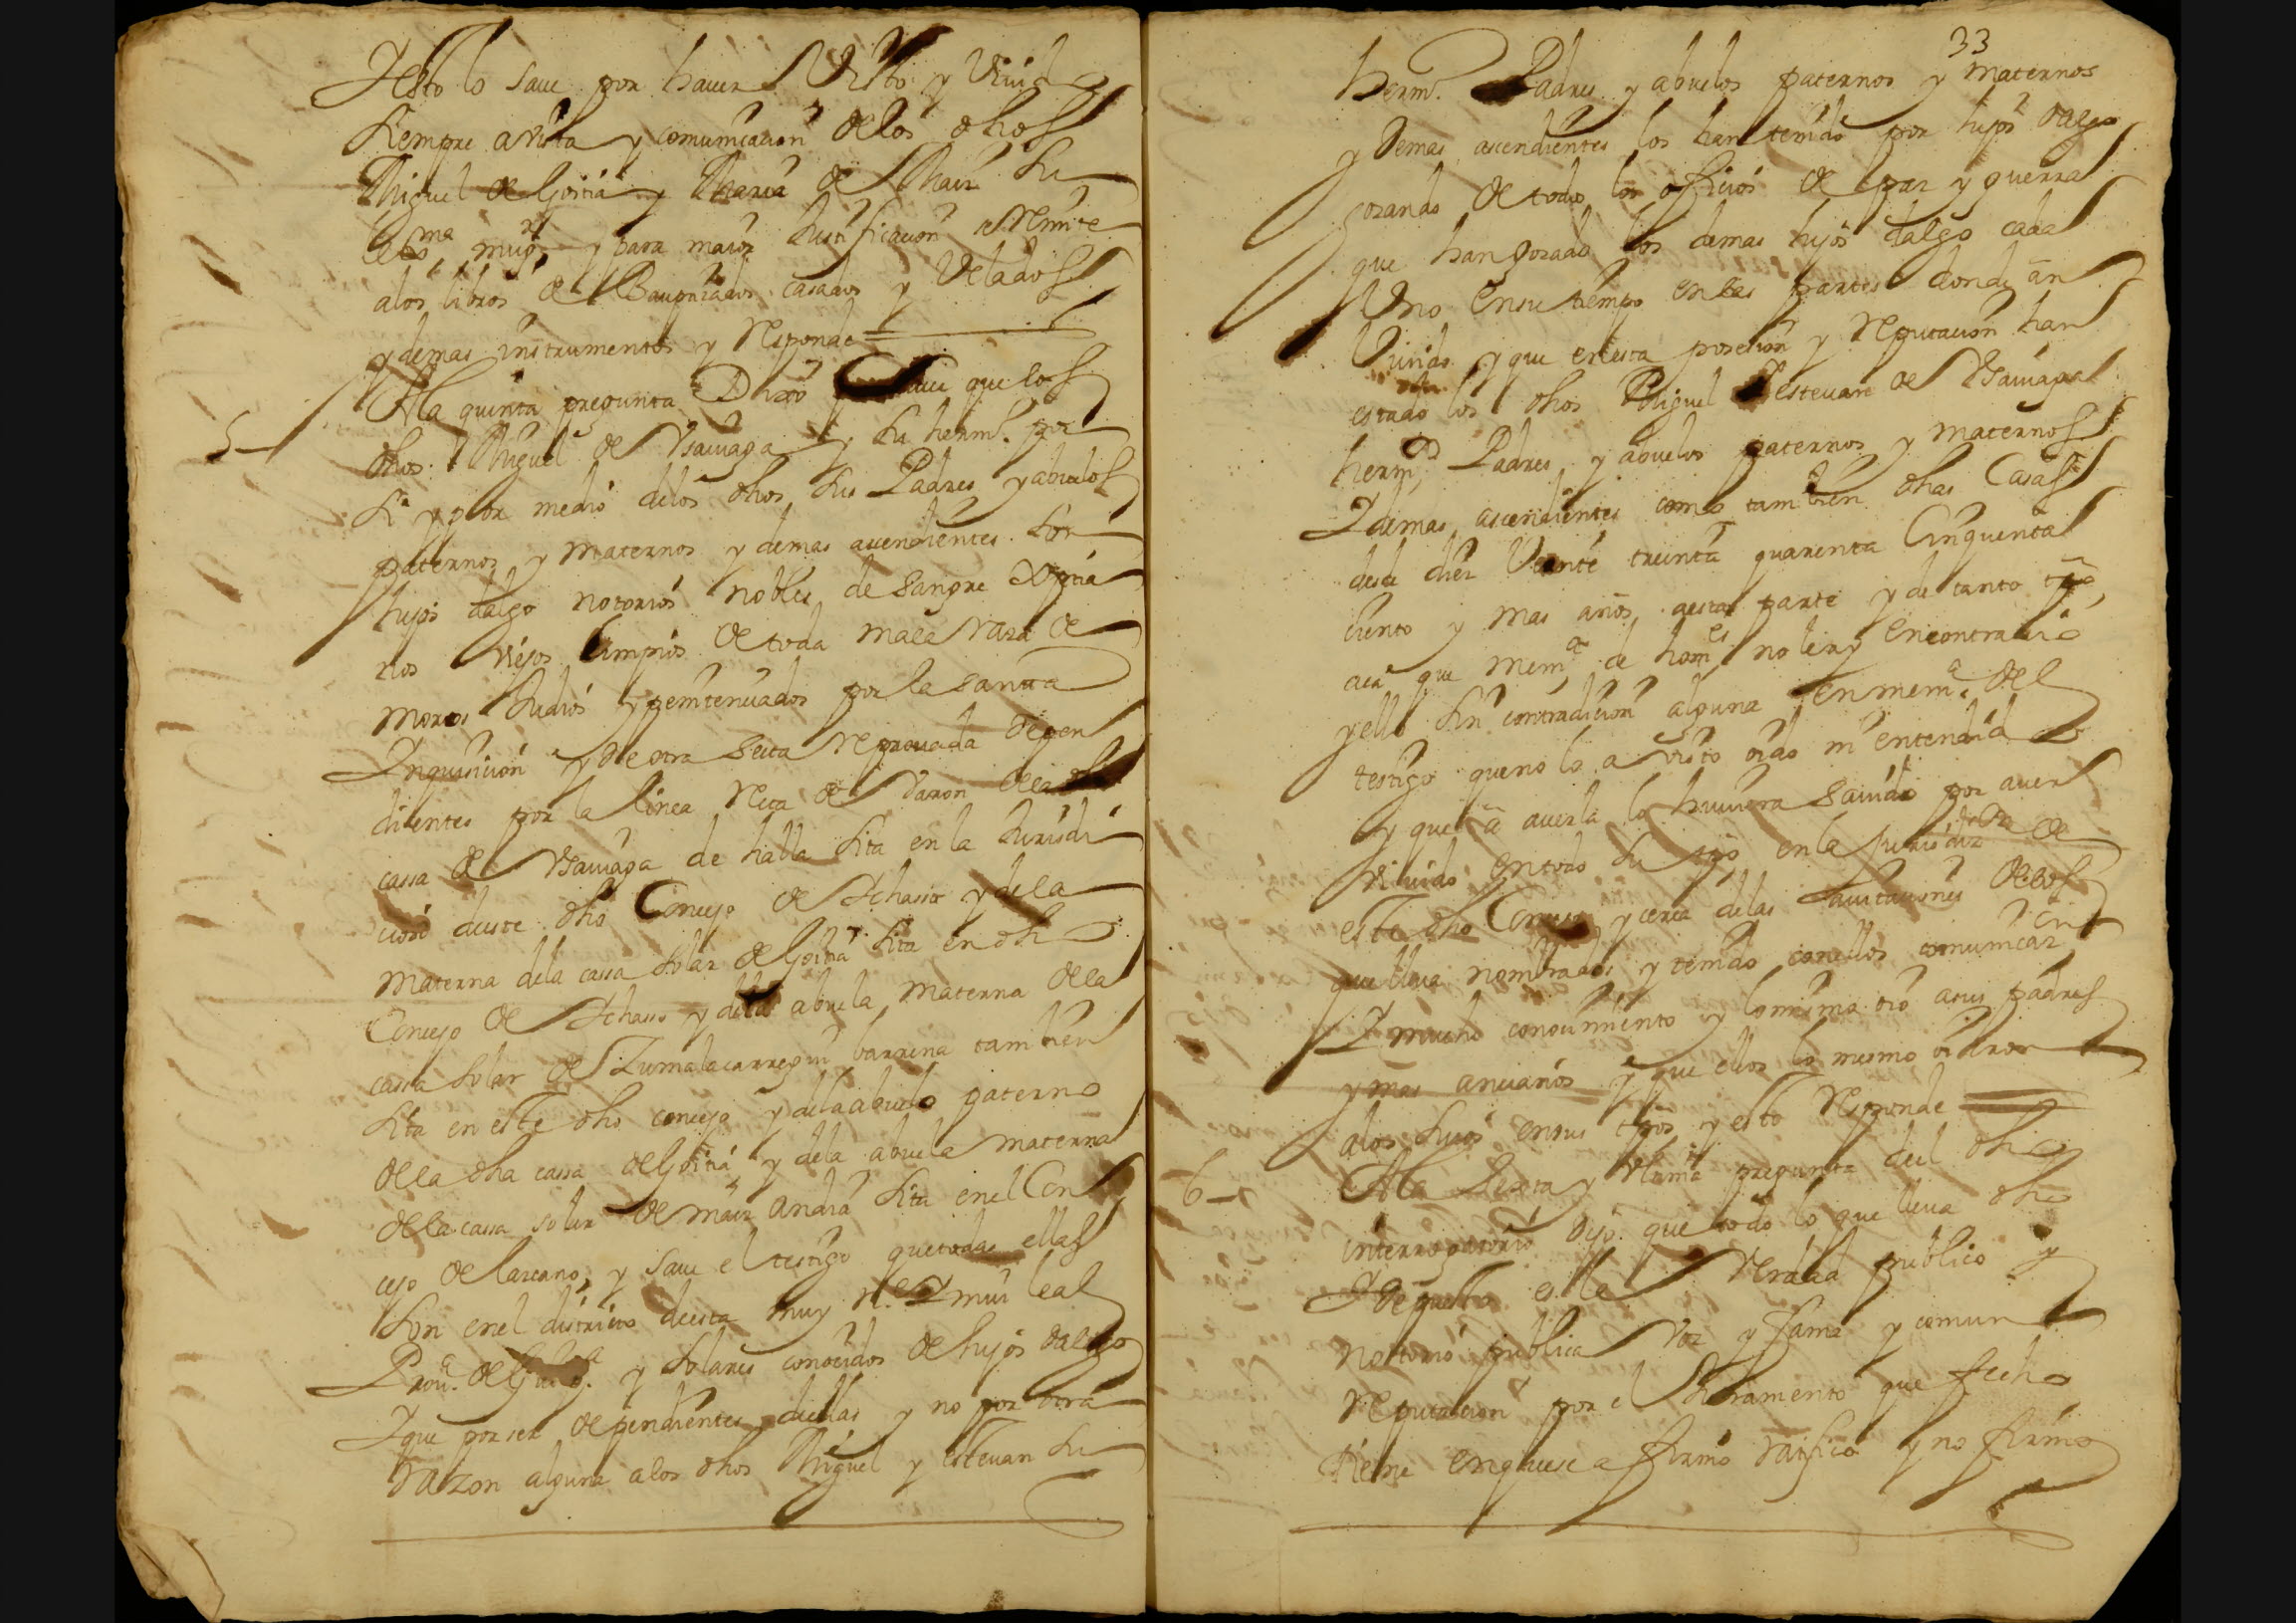 Y esto lo saue por hauer Visto y Viuido
siempre a vista y comunicacion de los dhos
Miguel de Goitia y Maria de Maiz su
lexma mugr y para maior Justificacion se Remite
a los libros de Bauptizados casados y Velados
y demas instrumentos y Responde
5 A la quinta pregunta Dixo saue que los
dhos Miguel de Ysauaga y su hermo por
si y por medio de los dhos sus Padres y abuelos
paternos y maternos y demas acendientes son
hijos dalgo notorios nobles de sangre xptia
nos viejos limpios de toda mala raza de
moros Judios y penitenciados por la santa
Inquisicion y de otra secta reprouada depen
dientes por la linea Reta de Varon de la dha
cassa de Ysauaga de halla sita en la Jurisdi
cion deste dho Concejo de Ychasso y de la
materna de la cassa solar de Goitia sita en dho
Concejo de Ychasso y de la abuela materna de la
cassa solar de Zumalacarregui barrena tambien
sita en este dho concejo y de la abuelo paterno
de la dha cassa de Goitia y de la abuela materna
de la cassa solar de maiz andia sita en el Con
cejo de lazcano, y saue el testigo que todas ellas
son en el districto desta muy Ne Y mui leal
Proua de Guipa y solares conocidos de hijos dalgo
Y que por ser dependientes dellas y no por otra
razon alguna a los dhos Miguel y esteuan su
33
hermo Padres y abuelos paternos y maternos
y demas ascendientes los han tenido por hijos dalgo
gozando de todos los oficios de paz y guerra
que han gozado los demas hijos dalgo cada
Uno en su tiempo en las partes donde an
Viuido y que en esta posesion y Reputacion han
estado los dhos Miguel Y esteuan de Ysauaga
hermos Padres y abuelos paternos y maternos
Y demas ascendientes como tambien dhas Casas
desde diez Veinte treinta quarenta Cinquenta
ciento y mas años a esta parte y de tanto tpo
aca que mema de homes no le ay en contrario
y ello sin contradicion alguna en mema del
testigo que no lo a visto oido ni entendido
y que a auerla lo huuiera sauido por auer
viuido en todo su tpo en la Jurisdizon de
este dho Concejo y cerca de las auitaciones de los
que lleua nombrados y tenido con ellos comunicazon
Y mucho conocimiento y lo mismo oio a sus padres
y mas ancianos y que ellos lo mesmo oieron
a los suios en sus tpos y esto Responde
6 A la Sexta y Vltima pregunta del dho
interrogatorio dijo que todo lo que lleua dho
Y depuesto es la Verdad publico y
notorio publica Voz y fama y comun
reputacion por el Juramento que fecho
tiene en que se afirmo ratifico y no firmo